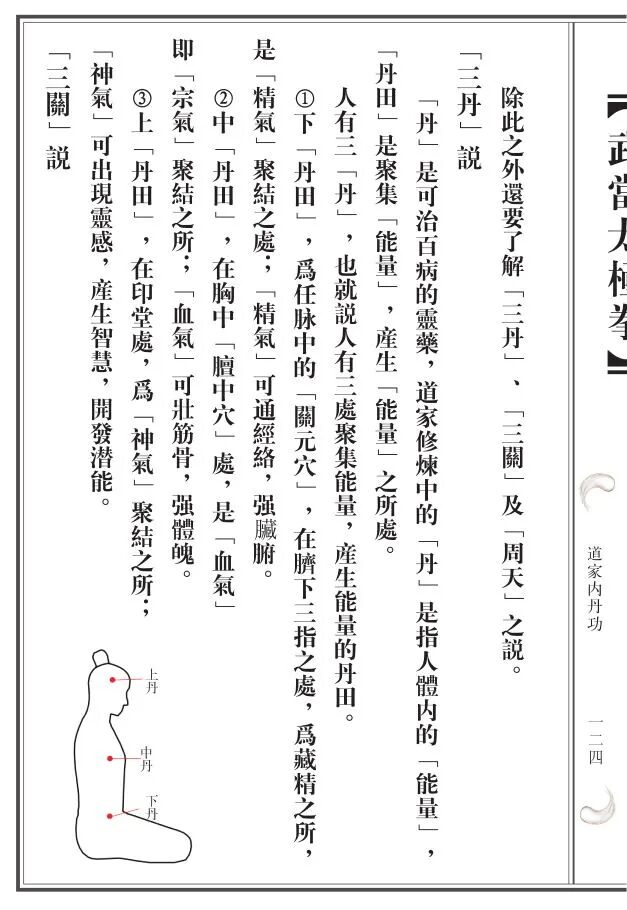 【武當太極拳】
道家内丹功
一二四
除此之外還要了解「三丹」、「三關」及「周天」之説。
「三丹」説
「丹」是可治百病的靈藥，道家修煉中的「丹」是指人體内的「能量」，
「丹田」是聚集「能量」，産生「能量」之所處。
人有三「丹」，也就説人有三處聚集能量，産生能量的丹田。
①下「丹田」，爲任脉中的「關元穴」，在臍下三指之處，爲藏精之所，
是「精氣」聚結之處；「精氣」可通經絡，强臟腑。
②中「丹田」，在胸中「膻中穴」處，是「血氣」
即「宗氣」聚結之所；「血氣」可壯筋骨，强體魄。
③上「丹田」，在印堂處，爲「神氣」聚結之所；
「神氣」可出現靈感，産生智慧，開發潛能。
「三關」説
上丹
中丹
下丹